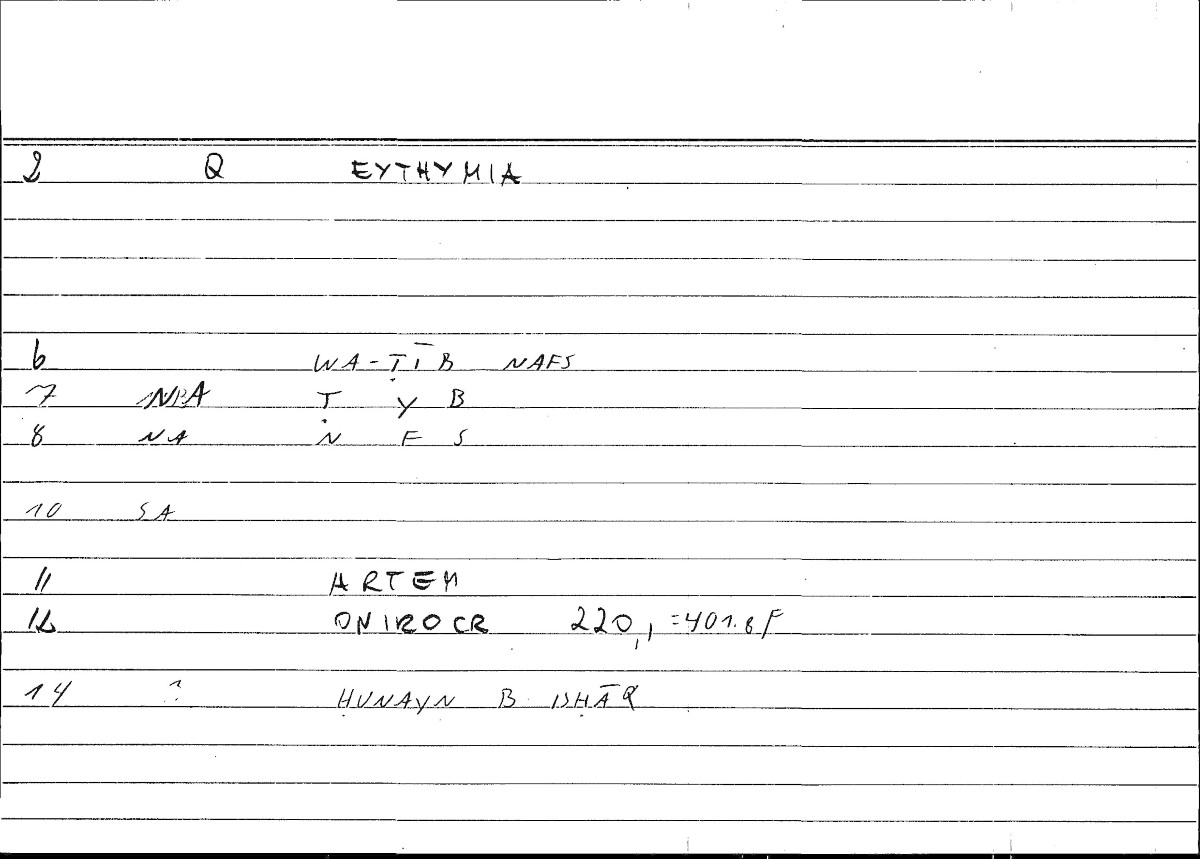 2 Q EYTHYMIA
6 WA-ṬĪB NAFS
7 NBA Ṭ Y B
8 NA N F S
10 SA
11 ARTEM
12 ONIROCR 220,1 =401.8 F
14 ? ḤUNAYN B ISḤĀQ